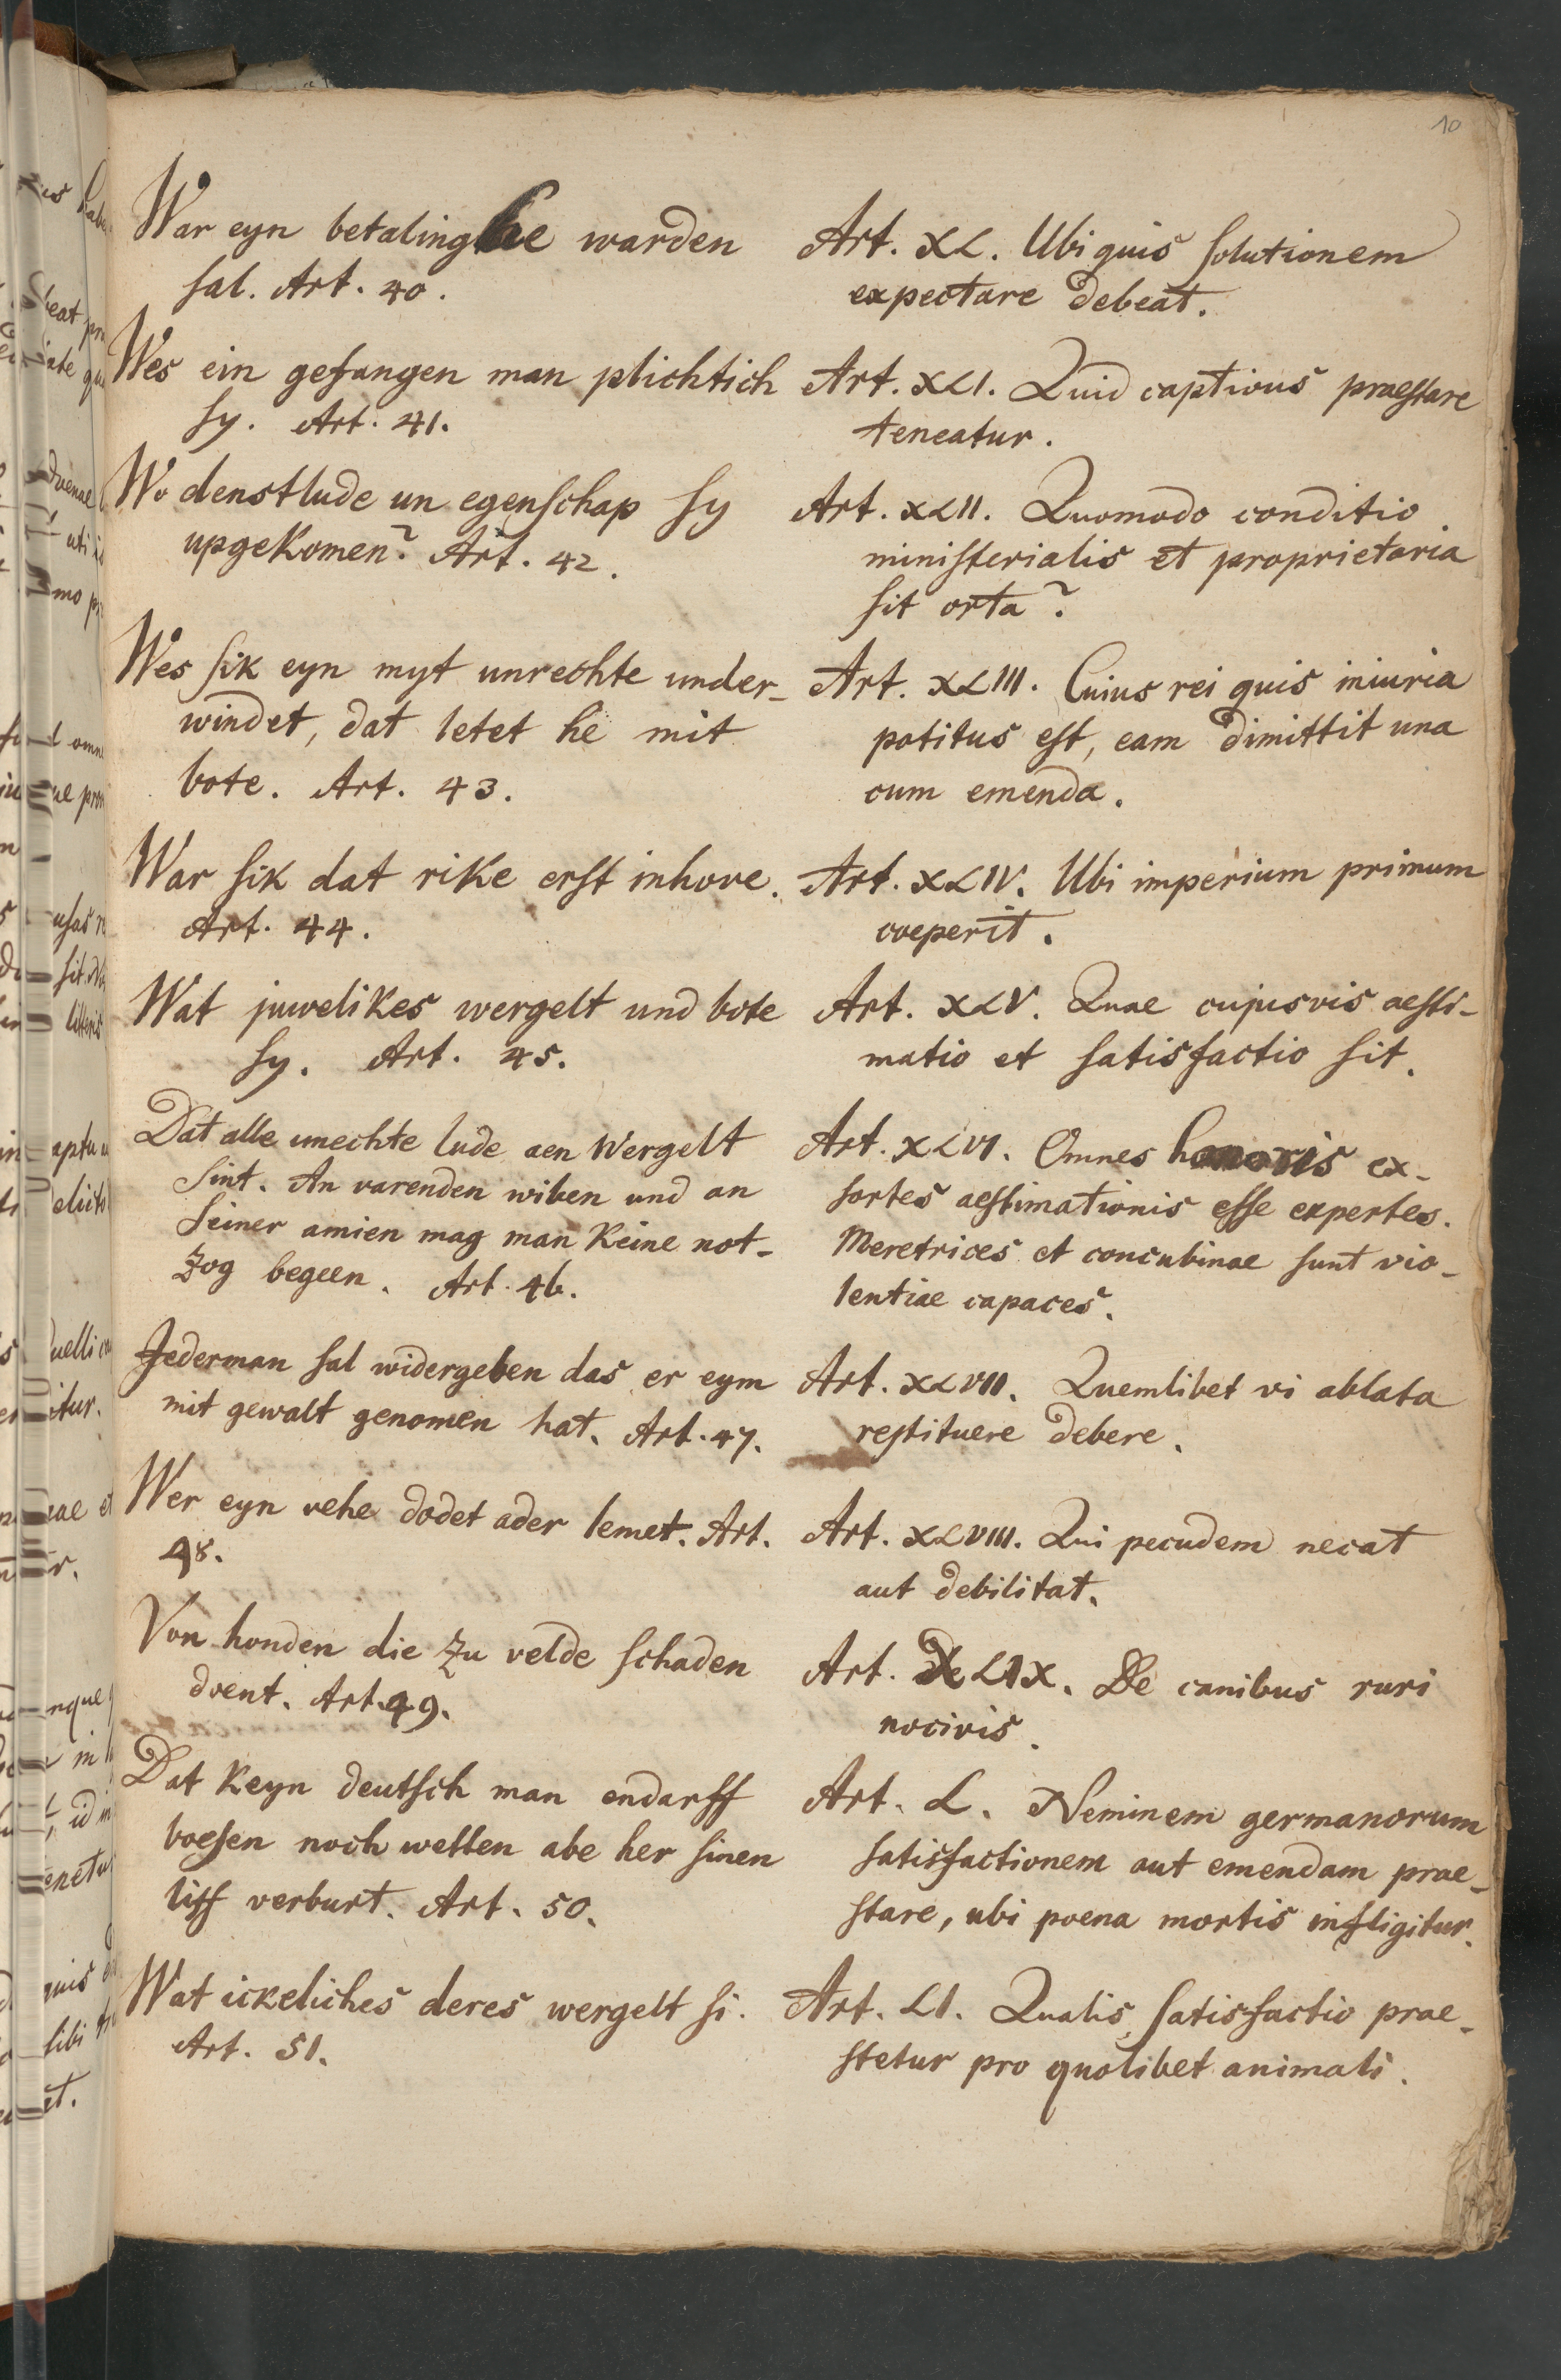 10
War eyn betalinghe warden
sal. Art. 40.
Wes ein gefangen man plichtich
sy. Art. 41.
Wo denstlude un egenschap sy
upgekomen? Art. 42.
Wes sik eyn myt unrechte under-
windet, dat letet he mit
bote. Art. 43.
War sik dat rike erst inhove.
Art. 44.
Wat juwelikes wergelt und bote
sy. Art. 45.
Dat alle unechte lude aen Wergelt
sint. An varenden wiben und an
seiner amien mag man keine not-
zog begeen. Art. 46.
Jederman sal widergeben das er eym
mit gewalt genomen hat. Art. 47.
Wer eyn vehe dodet ader lemet. Art.
48.
Von honden die zu velde schaden
doent. Art. 49.
Dat keyn deutsch man endarff
boesen noch wetten abe her sinen
liff verburt. Art. 50.
Wat ickeliches deres wergelt si.
Art. 51.
Art. XL. Ubi quis solutionem
expectare debeat.
Art. XLI. Quid captivus praestare
teneatur.
Art. XLII. Quomodo conditio
ministerialis et proprietaria
sit orta?
Art. XLIII. Cuius rei quis iniuria
potitus est, eam dimittit una
cum emenda.
Art. XLIV. Ubi imperium primum
coeperit.
Art. XLV. Quae cujusvis aesti-
matio et satisfactio sit.
Art. XLVI. Omnes honoris ex-
sortes aestimationis esse expertes.
Meretrices et concubinae sunt vio-
lentiae capaces.
Art. XLVII. Quemlibet vi ablata
restituere debere.
Art. XLVIII. Qui pecudem necat
aut debilitat.
Art. XLIX. De canibus ruri
nocivis.
Art. L. Neminem germanorum
satisfactionem aut emendam prae-
stare, ubi poena mortis infligitur.
Art. LI. Qualis satisfactio prae-
stetur pro quolibet animali.